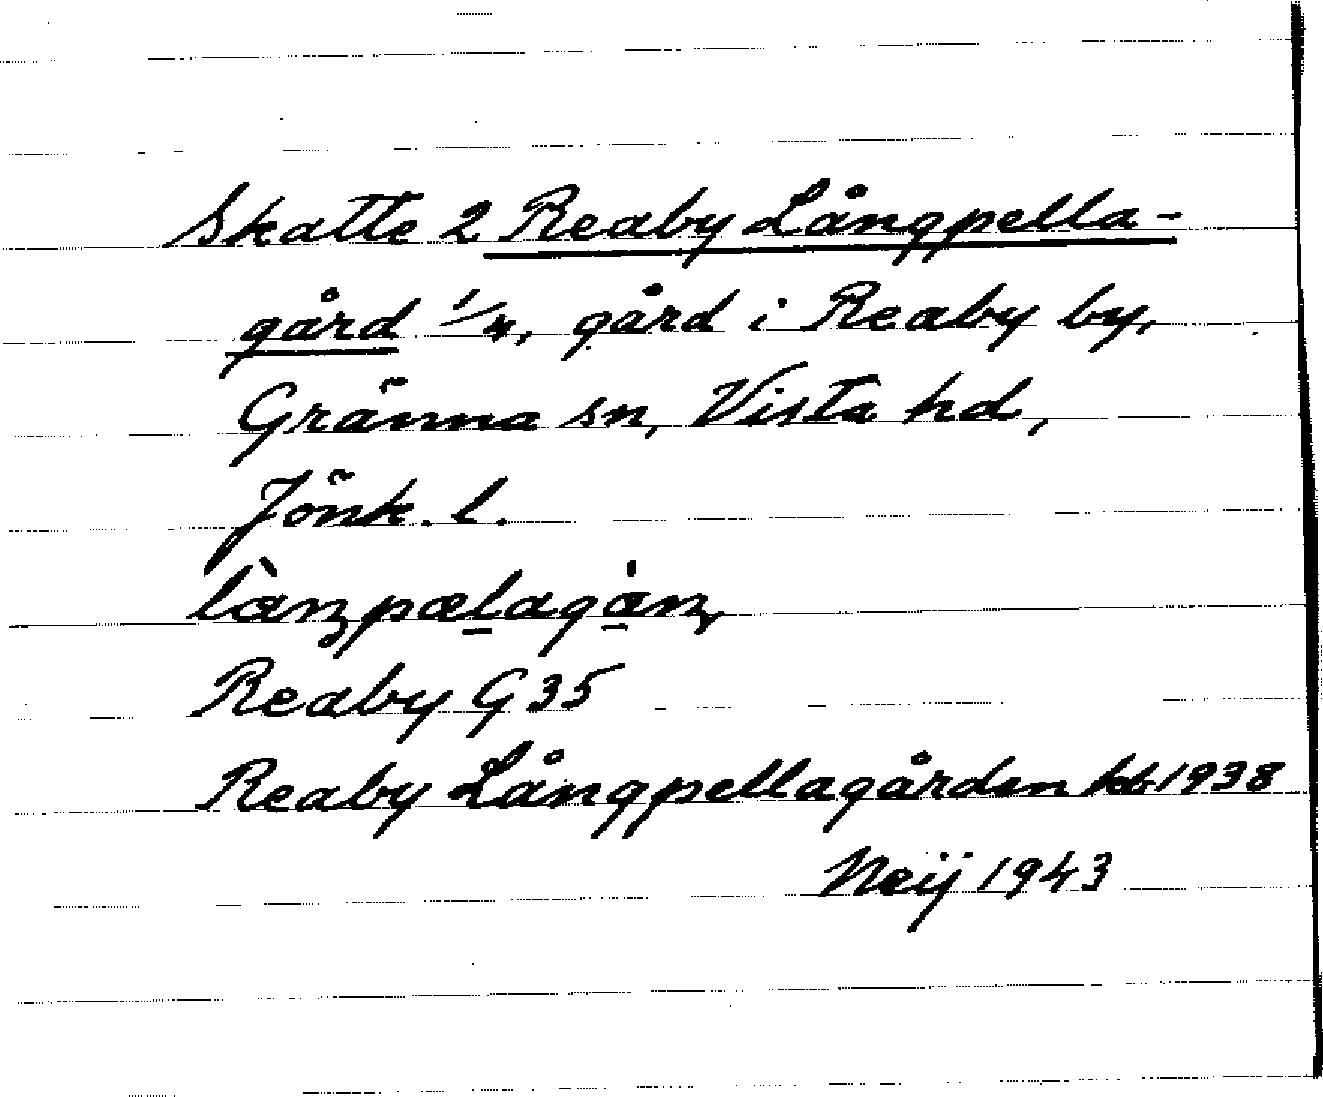 Skatte 2 Reaby Långpella-
gård 1/4, gård i Reaby by,
Gränna sn, Vista hd,
Jönk. l.
Reaby G 35
Reaby Långpellagården kb 1938
Neij 1943